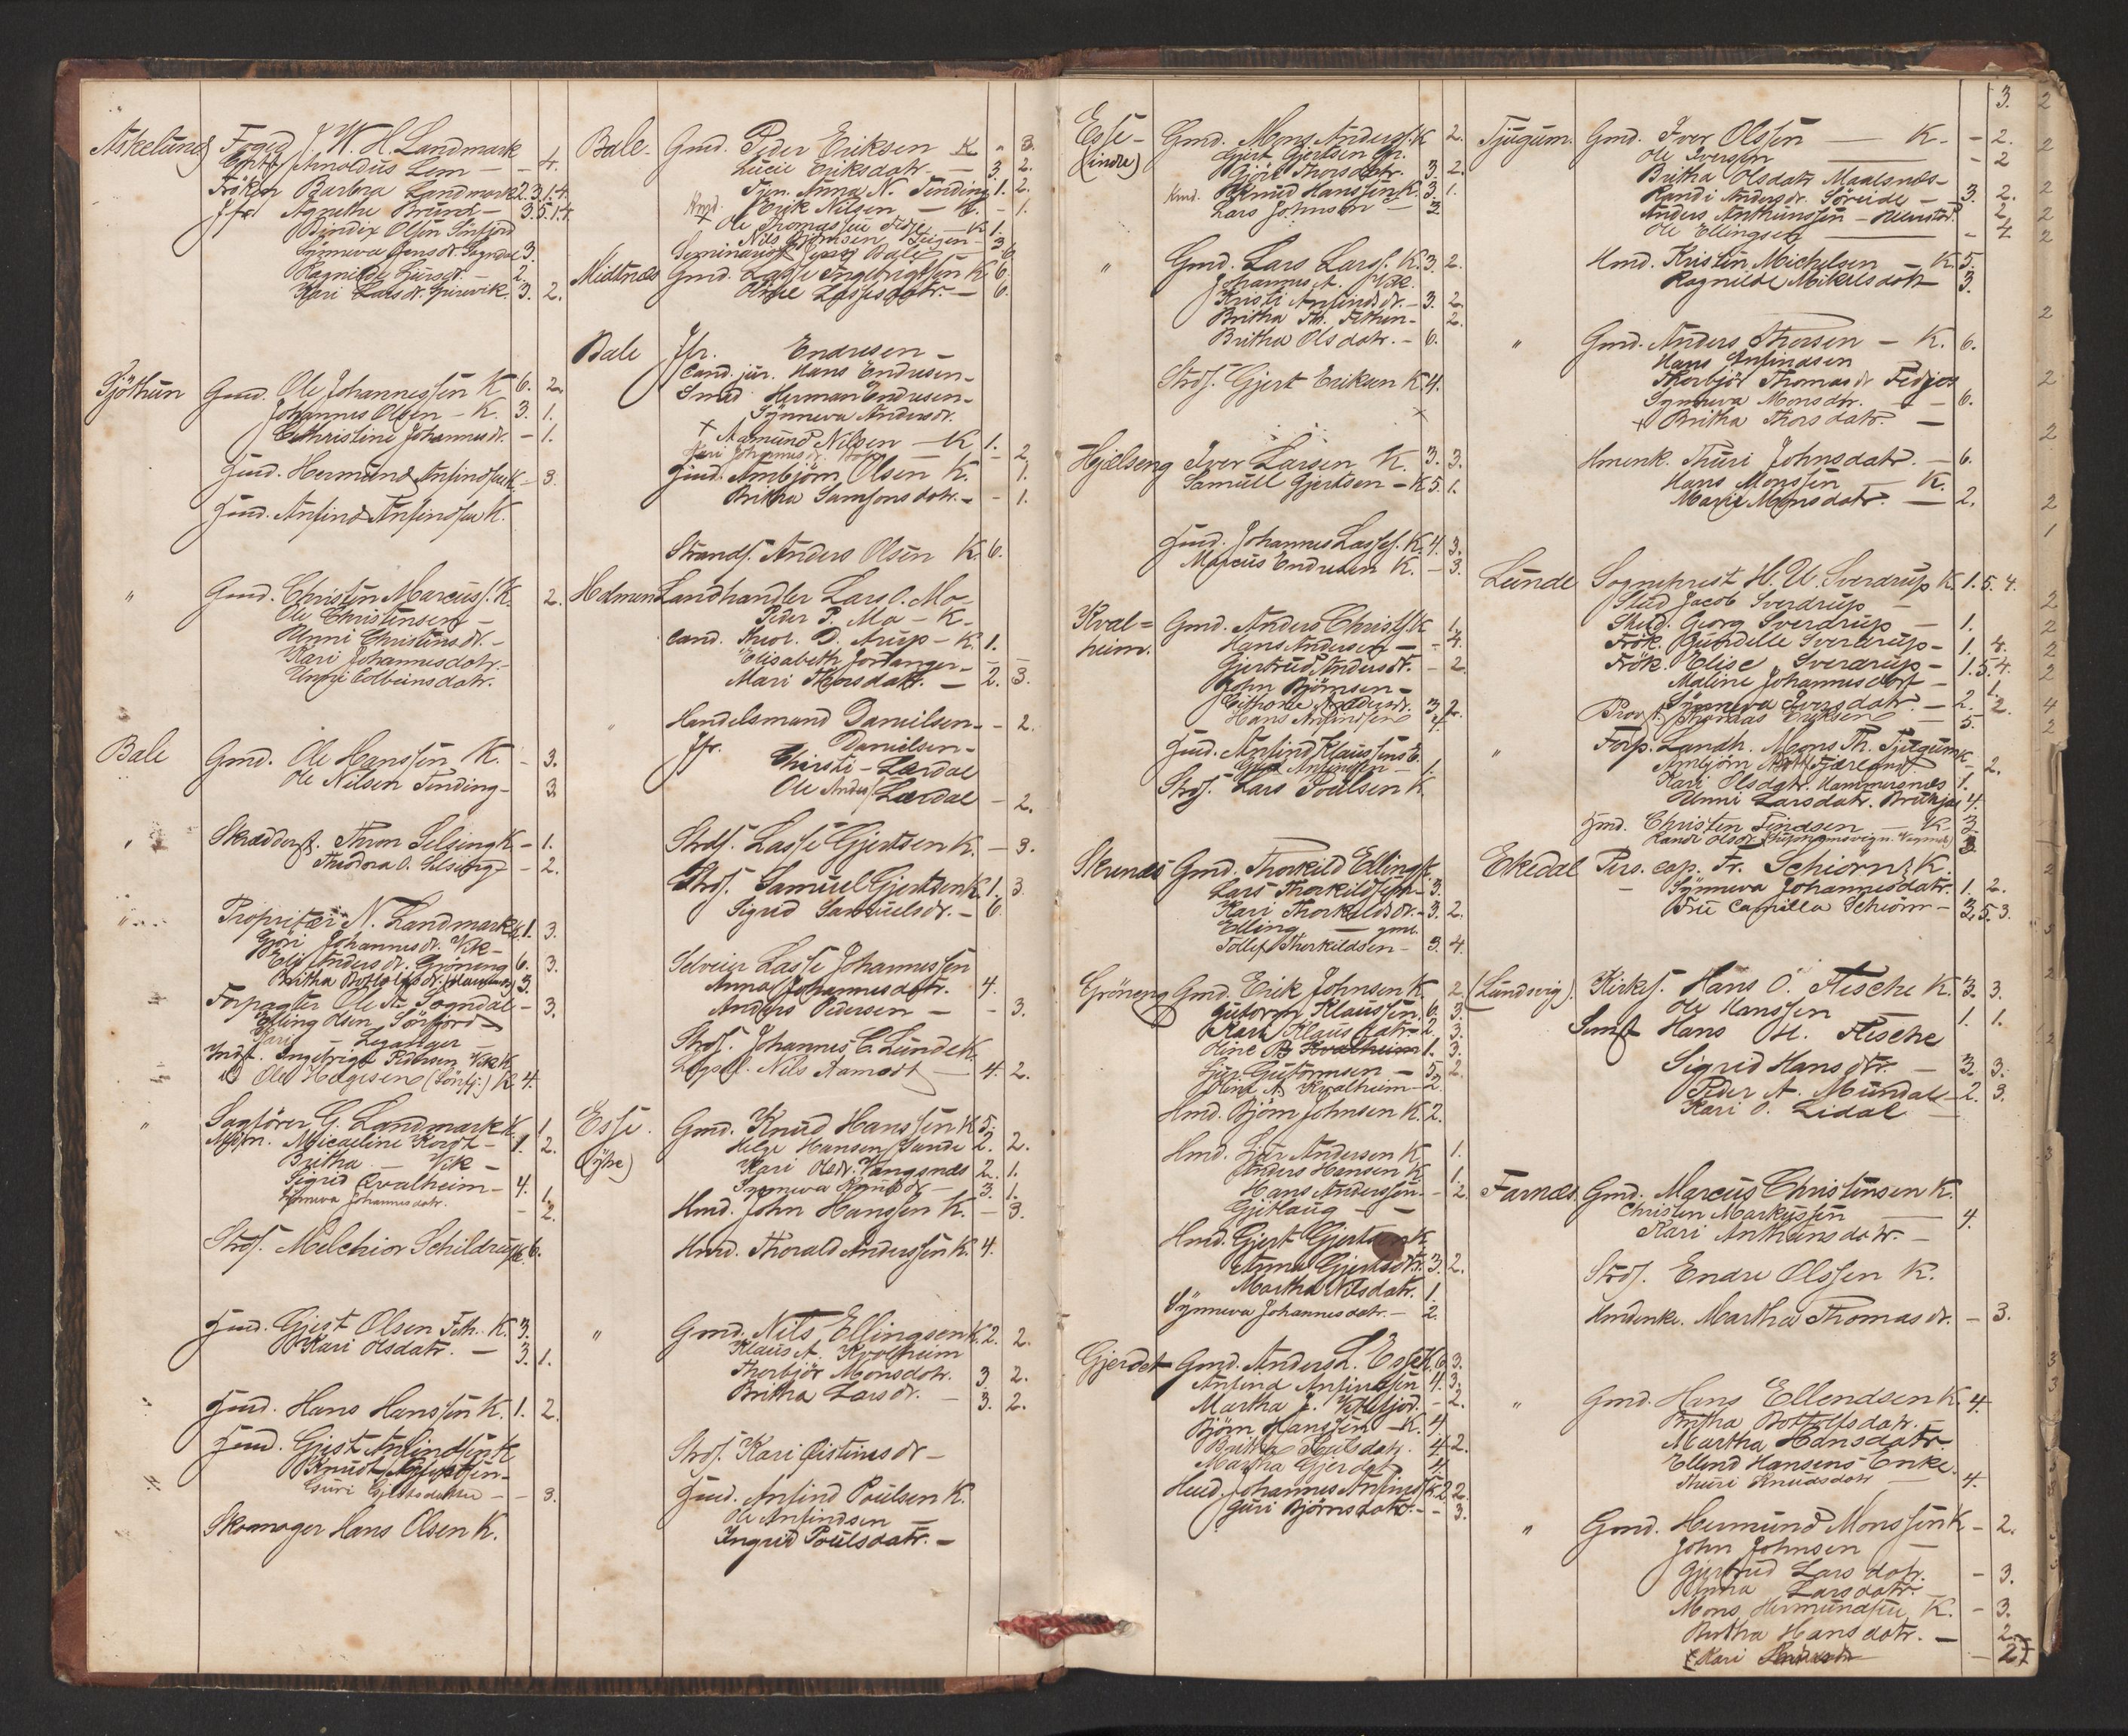 Askelund Foged J. W. H. Landmark
Cont. Arnoldus Lem - - 4.
Fröken Barbra Landmark 2.3.1.4.
Jfr. Agnethe Brund - 3.5.1.4.
Bendix Olsen Sönfjord
Synneva Jensdr. Sogndal 3.
Ragnilde Larsdr. - 2.
Kari Larsdr. 3. 2.
Sjöthun Gmd. Ole Johannessen K. 6. 2.
Johannes Olsen - K. 3. 1.
Cathristine Johannesdr. - 1.
Hmd. Hermund Anfindsen K. - 3.
Hmd. Anfind Anfindsen K.
" Gmd. Christen Marcuss. K. 2.
Ole Christensen -
Unni Christensdr. -
Kari Johannesdatr. -
Unni Colbeinsdatr.
Bale Gmd. Ole Hanssen K. - 3.
Ole Nilsen Tending - 3
" Skrædders. Thron Selseng K. - 1.
Theodora O. Selseng - 2.
" Propritær N. Landmark K. 1. 3.
Gjöri Johannesdr. Vik -
Eli Andersdr. Gröneng 6. 3.
Britha Botolfsdr. 3.
Forpagter Ole A. Sogndal - 3.
Elling Olsen Sönfjord -
Kari - Leganger -
Indst. Ingebrigt Pedersen Vik K.
id Ole Helgesen (Sönfj.) K. 4.
" Sagförer G. Landmark K. 1.
Mdm. Micaeline Koront - 1. 2.
Britha - Vik -
Sigrid Qvalheim - 4. 1.
Synneva Johannesdatr. - 2.
Strds. Melchior Schildrup K. 6.
Hmd. Gjert Olsen Feth. K. 3.
Kari Olsdatr. - 3. 1.
Hmd. Hans Hanssen K. 1. 2.
Hmd. Gjert Anfindsen K.
Knud Gjertsen -
Guri Gjertsdatter - - 3.
Skomager Hans Olsen K.
Bale - Gmd. Peder Eriksen K " 3.
Lucie Eriksdatr. - 3. 2.
Tjen. Anna N. Tending 1. 2.
Kmd. Erik Nilsen - K. - 1.
Ole Thomassen Fedje - K 1.
Nils Björnsen Teigen - 3
Seminarist Bale - 6
Midtnæs Gmd. Lasse Ingebrigtsen K. 6.
Oline Lassesdatr. - 6.
Bale Jfr. Endresen -
Cand. jur. Hans Endresen -
Smed Herman Endresen -
Synneva Andersdr.
+ Aamund Nilsen - K 1.
Kari Johannesdr. - - 2
Hmd. Arnbjörn Olsen K. 1.
Britha Samsonsdatr. - - 1.
Strands. Anders Olsen K. 6.
Holmen Landhandler Lars O. Mo -
Peder P. Mo - K -
Cand. theol. D. Arup - K. 1.
Elisabeth Jortanger - -
Mari Thorsdatr. - 2. 3.
" Handelsmand Danielsen - - 2.
Jfr. Danielsen -
Kristi - Lærdal
Ole Anders. Lærdal - 2.
Strds. Lasse Gjertsen K. - 3.
Strds. Samuel Gjertsen K. 1. 3.
Sigrid Samuelsdr. - 6
Selveier Lasse Johannessen
Anna Johannesdatr. 4.
Anders Pedersen - - 3.
Strds. Johannes C. Lunde K.
Logsk. Nils Aamodt - 4. 2.
Esse. Gmd. Knud Hanssen K. 5.
(ytre) Helge Hansen Sande 2. 2.
Kari Olsdr. Vangsnæs 2. 1.
Synneva Knudsdr. - 3. 1.
Hmd. John Hanssen K. - 3.
Hmd. Thorald Anderssen K. 4.
" Gmd. Nils Ellingsen K. 2. 2.
Klaus A. Kvalheim
Thorbjör Monsdatr. 3 2.
Britha Larsdr. - 3. 2.
Strds. Kari Östensdr -
Hmd. Anfind Poulsen K.
Ole Anfindsen -
Ingrid Poulsdatr. -
Esse - Gmd. Mons Anders. K 2.
(indre) Gjert Gjertsen Gr.
Gjöri Thorsdatr. 3. 2.
Kmd. Knud Hanssen K. 3. 1.
Lars Johnsen - 3
" Gmd. Lars Lars. K. 3. 2.
Johannes A. Vik.
Kristi Anfindsdr. - 3. 2.
Britha Th. Fethen - 2.
Britha Olsdatr. - 6.
Strds. Gjert Eriksen K. 4.
×
Hjelseng Iver Larsen K. 3. 3.
Samuel Gjertsen - K. 5. 1.
Hmd. Johannes Lasses. K. 4. 3.
Marcus Endresen K. - 3.
Kval= Gmd. Anders Christs. K 1.
heim. Hans Andersen - - 4.
Gjertrud Andersdr. - 2
John Björnsen -
Cithone Andersdr. 3 2.
Hans Anfindsen 4.
Hmd. Anfind Klaussens E.
Anfindsen - 1.
Strds. Lars Poulsen K.
Skrenæs Gmd. Thorkild Ellings. K.
Lars Thorkildsen - 3.
Kari Thorkildsdr. - 3. 2.
Elling - gml.
Tollef Therkildsen - 3. 4.
Gröneng Gmd. Erik Johnsen K. 2
Gutorm Klaussen 6. 3.
Kari Klausdatr. 2 3.
Oline B Kvalheim 1. 3.
Lasse Gutormsen - 5. 2.
Oline A. Kvalheim - 2.
Hmd. Björn Johnsen K. 2.
Hmd. Lar Andersen K. 1.
Anders Hansen K 1.
Hans Anderssen. - 2.
Gjetlaug - -
Hmd. Gjert Gjertsen K.
Anna Gjertsdtr. 3. 2.
Martha Nilsdatr. 1.
Synneva Johannesdatr. - 2.
Gjerdet Gmd. Anders L. Esse K. 6. 3.
Anfind Anfindsen 4. 3.
Martha J. Vetlefjord. - 2.
Björn Hanssen - K. 4.
Britha Poulsdatr. 4. 2.
Martha Gjerdet 4.
Hmd. Johannes Anfinds. K. 2. 2.
Guri Björnsdatr. - - 3.
3.
Tjugum. Gmd. Iver Olssen - K. - 2.
Ole Iverssen - 2
Britha Olsdatr Maalsnæs -
Randi Andersdr. Söreide - 3. 2.
Anders Anthunssen - Henstad. 2
Ole Ellingsen - - 4
Hmd. Kristen Michelsen - K. 5.
Ragnilde Mikkelsdatr 3.
" Gmd. Anders Thorsen - K. 6.
Hans Anfindsen
Thorbjör Thomasdr Fedje
Synneva Monsdtr. - - 6.
+ Britha Thorsdatr. -
Hmenk. Thuri Johnsdatr. - 6.
Hans Monssen K.
Marie Monsdatr. - 2.
Lunde Sogneprest H. U. Sverdrup K. 1. 5. 4.
Stud. Jacob Sverdrup -
Stud. Georg Sverdrup - 1.
Frök. Gunhilde Sverdrup - 1. 4.
Frök. Elise Sverdrup - 1. 5. 4.
Maline Johannesdatr - 1.
Synneva Iversdatr. - 2. 2.
Provst. Thomas Eriksen - 5.
" Forp. Landh. Mons Th. Tjugum K.
Arnbjörn Fjærland 2.
Kari Olsdatr. Hammersnæs 1.
Unni Larsdatr. 4.
Hmd. Christen Findsen - K. 3.
Randi Olsdr. 3.
Ekedal Pers. cap. Fr. Schiörn K.
Synneva Johannesdatr. 1. 2.
Fru Camilla Schiörn - 3. 5. 3.
(Lundsvig). Kirkes. Hans O. Flesche K. 3. 3.
Ole Hanssen 1. 1.
Semst Hans H. Flesche
Sigrid Hansdtr. - 3. 3.
Peder A. Mundal - 2. 3.
Kari O. Lidal -
Farnæs. Gmd. Marcus Christensen K.
Christen Markussen - 4.
Kari Anthunsdatr. -
Strds. Endre Olssen K.
Hmdenke. Martha Thomasdr. - 3.
" Gmd. Hans Ellendsen K. 4.
Britha Botolfsdatr. -
Martha Hansdatr -
Ellend Hansens Enke.
Thuri Knudsdatr - 4.
" Gmd. Hermund Monssen K - 2.
John Johnsen -
Gjertrud Larsdatr. - 3.
Anna Larsdatr.
Mons Hermundsen K. - 3.
Britha Hansdatr. - 2.
Kari - 2